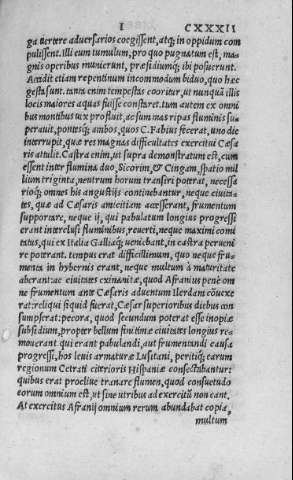 I CXXXII
ga uertere aduersarios coegissent, atq; in oppidum com
pulissent. illi eum tumulum, pro quo pugnatum est, ma
gnis operibus munierunt, præsidiumq; ibi posuerunt.
Accidit etiam repentinum incommodum biduo, quo hæc
gesta sunt. tanta enim tempestas cooritur, ut nunquā illis
locis maiores aquas fuisse constaret. tum autem ex omni
bus montibus nix proluit, ac summas ripas fluminis su
perauit, pontesq; ambos, quos C. Fabius fecerat, uno die
interrupit, quæ res magnas difficultates exercitui Cæsa
ris attulit. Castra enim, ut supra demonstratum est, cum
essent inter flumina duo, Sicorim, & Cingam, spatio mil
lium triginta, neutrum horum transiri poterat, necessa
rioq; omnes his angustijs continebantur, neque ciuita
tes, quæ ad Cæsaris amicitiam accesserant, frumentum
supportare, neque ij, qui pabulatum longius progressi
erant interclusi fluminibus, reuerti, neque maximi comi
tatus, qui ex Italia Galliaq; ueniebant, in castra perueni
re poterant. tempus erat difficillimum, quo neque fru-
menta in hybernis erant, neque multum à maturitate
aberant: ac ciuitates exinanitæ, quod Afranius penè om
ne frumentum ante Cæsaris aduentum Ilerdam cōuexe
rat: reliqui siquid fuerat, Cæsar superioribus diebus con
sumpserat: pecora, quod secundum poterat esse inopiæ
subsidium, propter bellum finitimæ ciuitates longius re-
mouerant qui erant pabulandi, aut frumentandi causa
progressi, hos leuis armaturæ Lusitani, peritiq; earum
regionum Cetrati citerioris Hispaniæ consectabantur:
quibus erat procliue tranare flumen, quod consuetudo
eorum omnium est, ut sine utribus ad exercitū non eant.
At exercitus Afranij omnium rerum abundabat copia,
multum